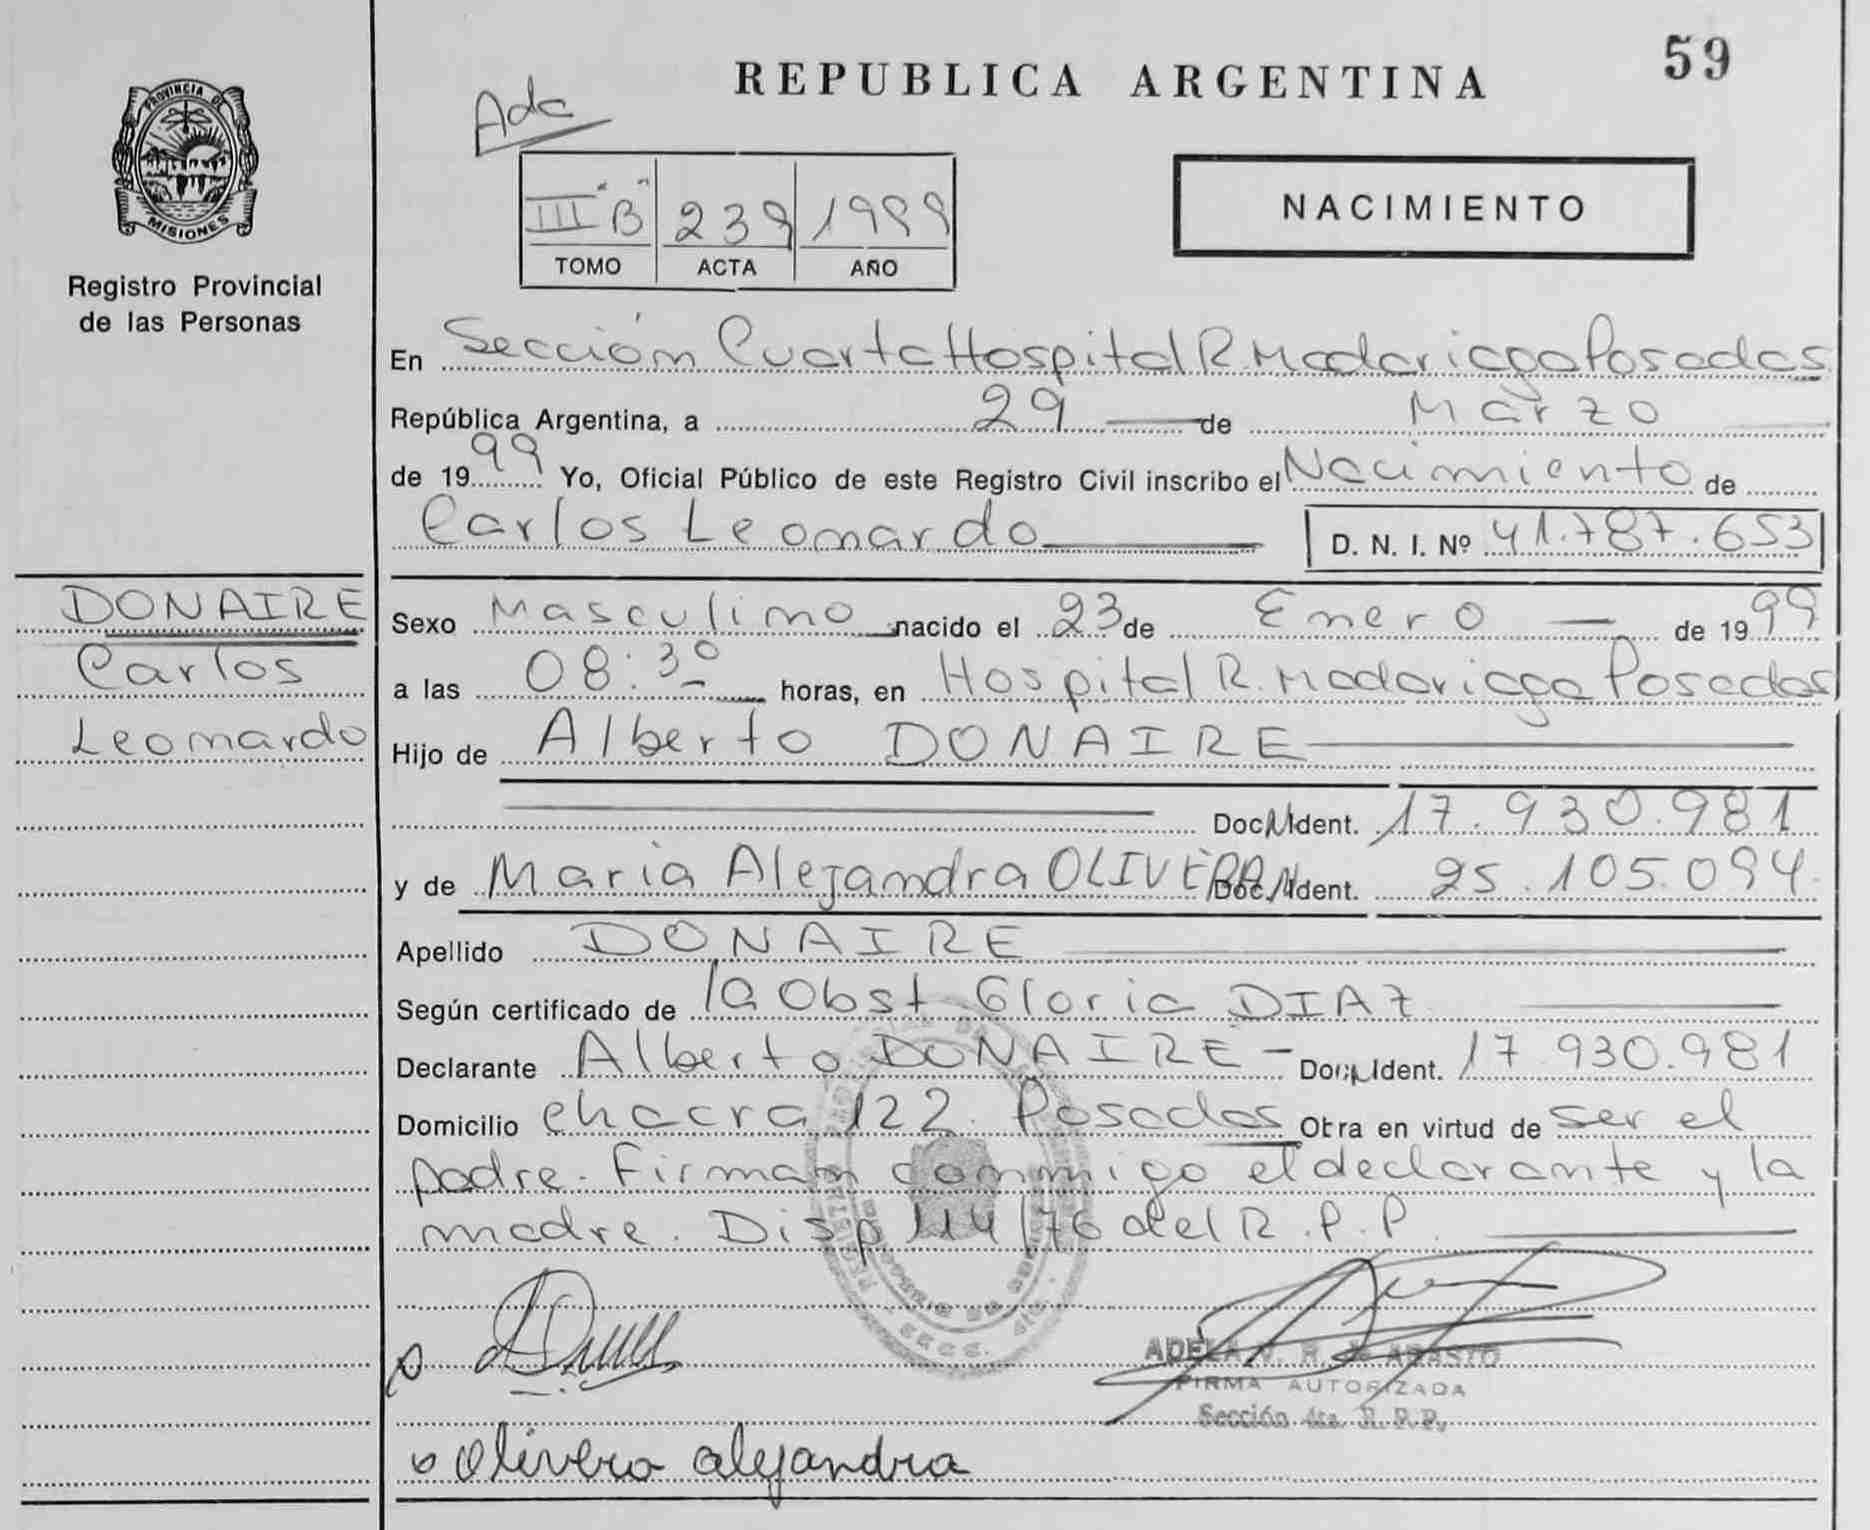 59
REPUBLICA ARGENTINA
PROVINCIA DE
MISIONES
Registro Provincial
de las Personas
Adc
III "B" 239 1999
TOMO ACTA AÑO
NACIMIENTO
En Sección Cuarta Hospital R. Madariaga Posadas
República Argentina, a 29 de Marzo
de 1999 Yo, Oficial Público de este Registro Civil inscribo el Nacimiento de
Carlos Leonardo D. N. I. Nº 41.787.653
DONAIRE
Carlos
Leonardo
Sexo Masculino nacido el 23 de Enero de 1999
a las 08:30 horas, en Hospital R. Madariaga Posadas
Hijo de Alberto DONAIRE
Doc. Ident. 17.930.981
y de Maria Alejandra OLIVERA Doc. Ident. 25.105.094
Apellido DONAIRE
Según certificado de la Obst Gloria DIAZ
Declarante Alberto DONAIRE - Doc. Ident. 17.930.981
Domicilio chacra 122 Posadas Obra en virtud de ser el
padre. Firman conmigo el declarante y la
madre. Disp 114/76 del R.P.P.
ADELA V. R. de ABASTO
FIRMA AUTORIZADA
Sección 4ta. R.P.P.
Olivera alejandra